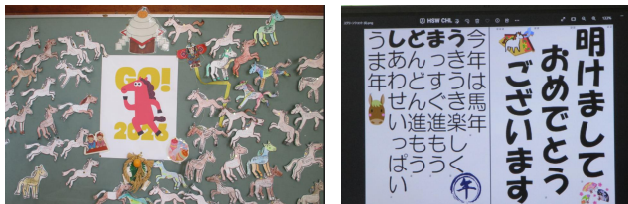 GO!
2026
HSW CHL
明けまして
おめでとう
ございます
今年は馬年
うきうき楽しく
まっすぐ進もう
どんどん進もう
しあわせいっぱい
うま年
午